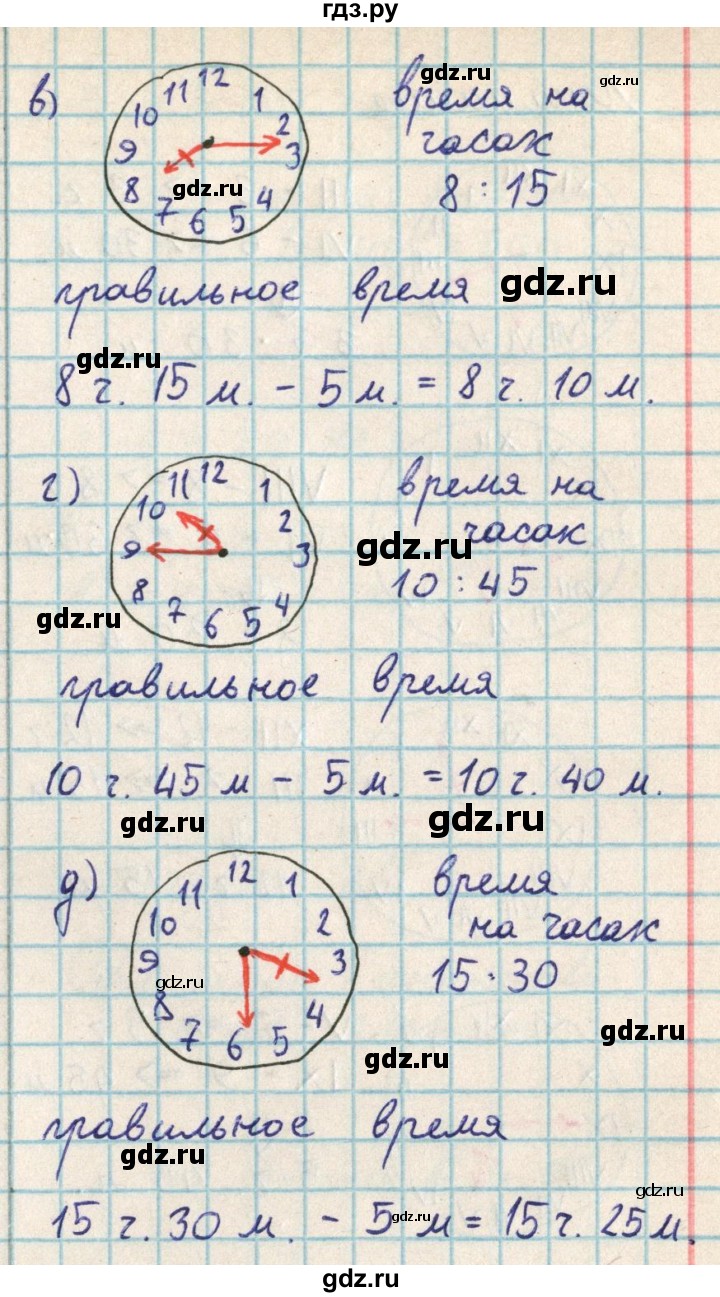 гдз.ру
в)
12
11 1
10 2
9 3
8 4
7 6 5
gdz.ru
время на
gdz.ru
gdz.ru
часах
8 : 15
правильное время
gdz.ru
gdz.ru
8 ч. 15 м. - 5 м. = 8 ч. 10 м.
г)
12
11 1
10 2
9 3
8 4
7 6 5
время на
часах
gdz.ru
10 : 45
gdz.ru
правильное время
10 ч. 45 м - 5 м. = 10 ч. 40 м.
gdz.ru
gdz.ru
д)
12
11 1
10 2
9 3
8 4
7 6 5
gdz.ru
время
на часах
15 : 30
gdz.ru
gdz.ru
правильное время
gdz.ru
gdz.ru
15 ч. 30 м. - 5 м = 15 ч. 25 м.
gdz.ru
gdz.ru